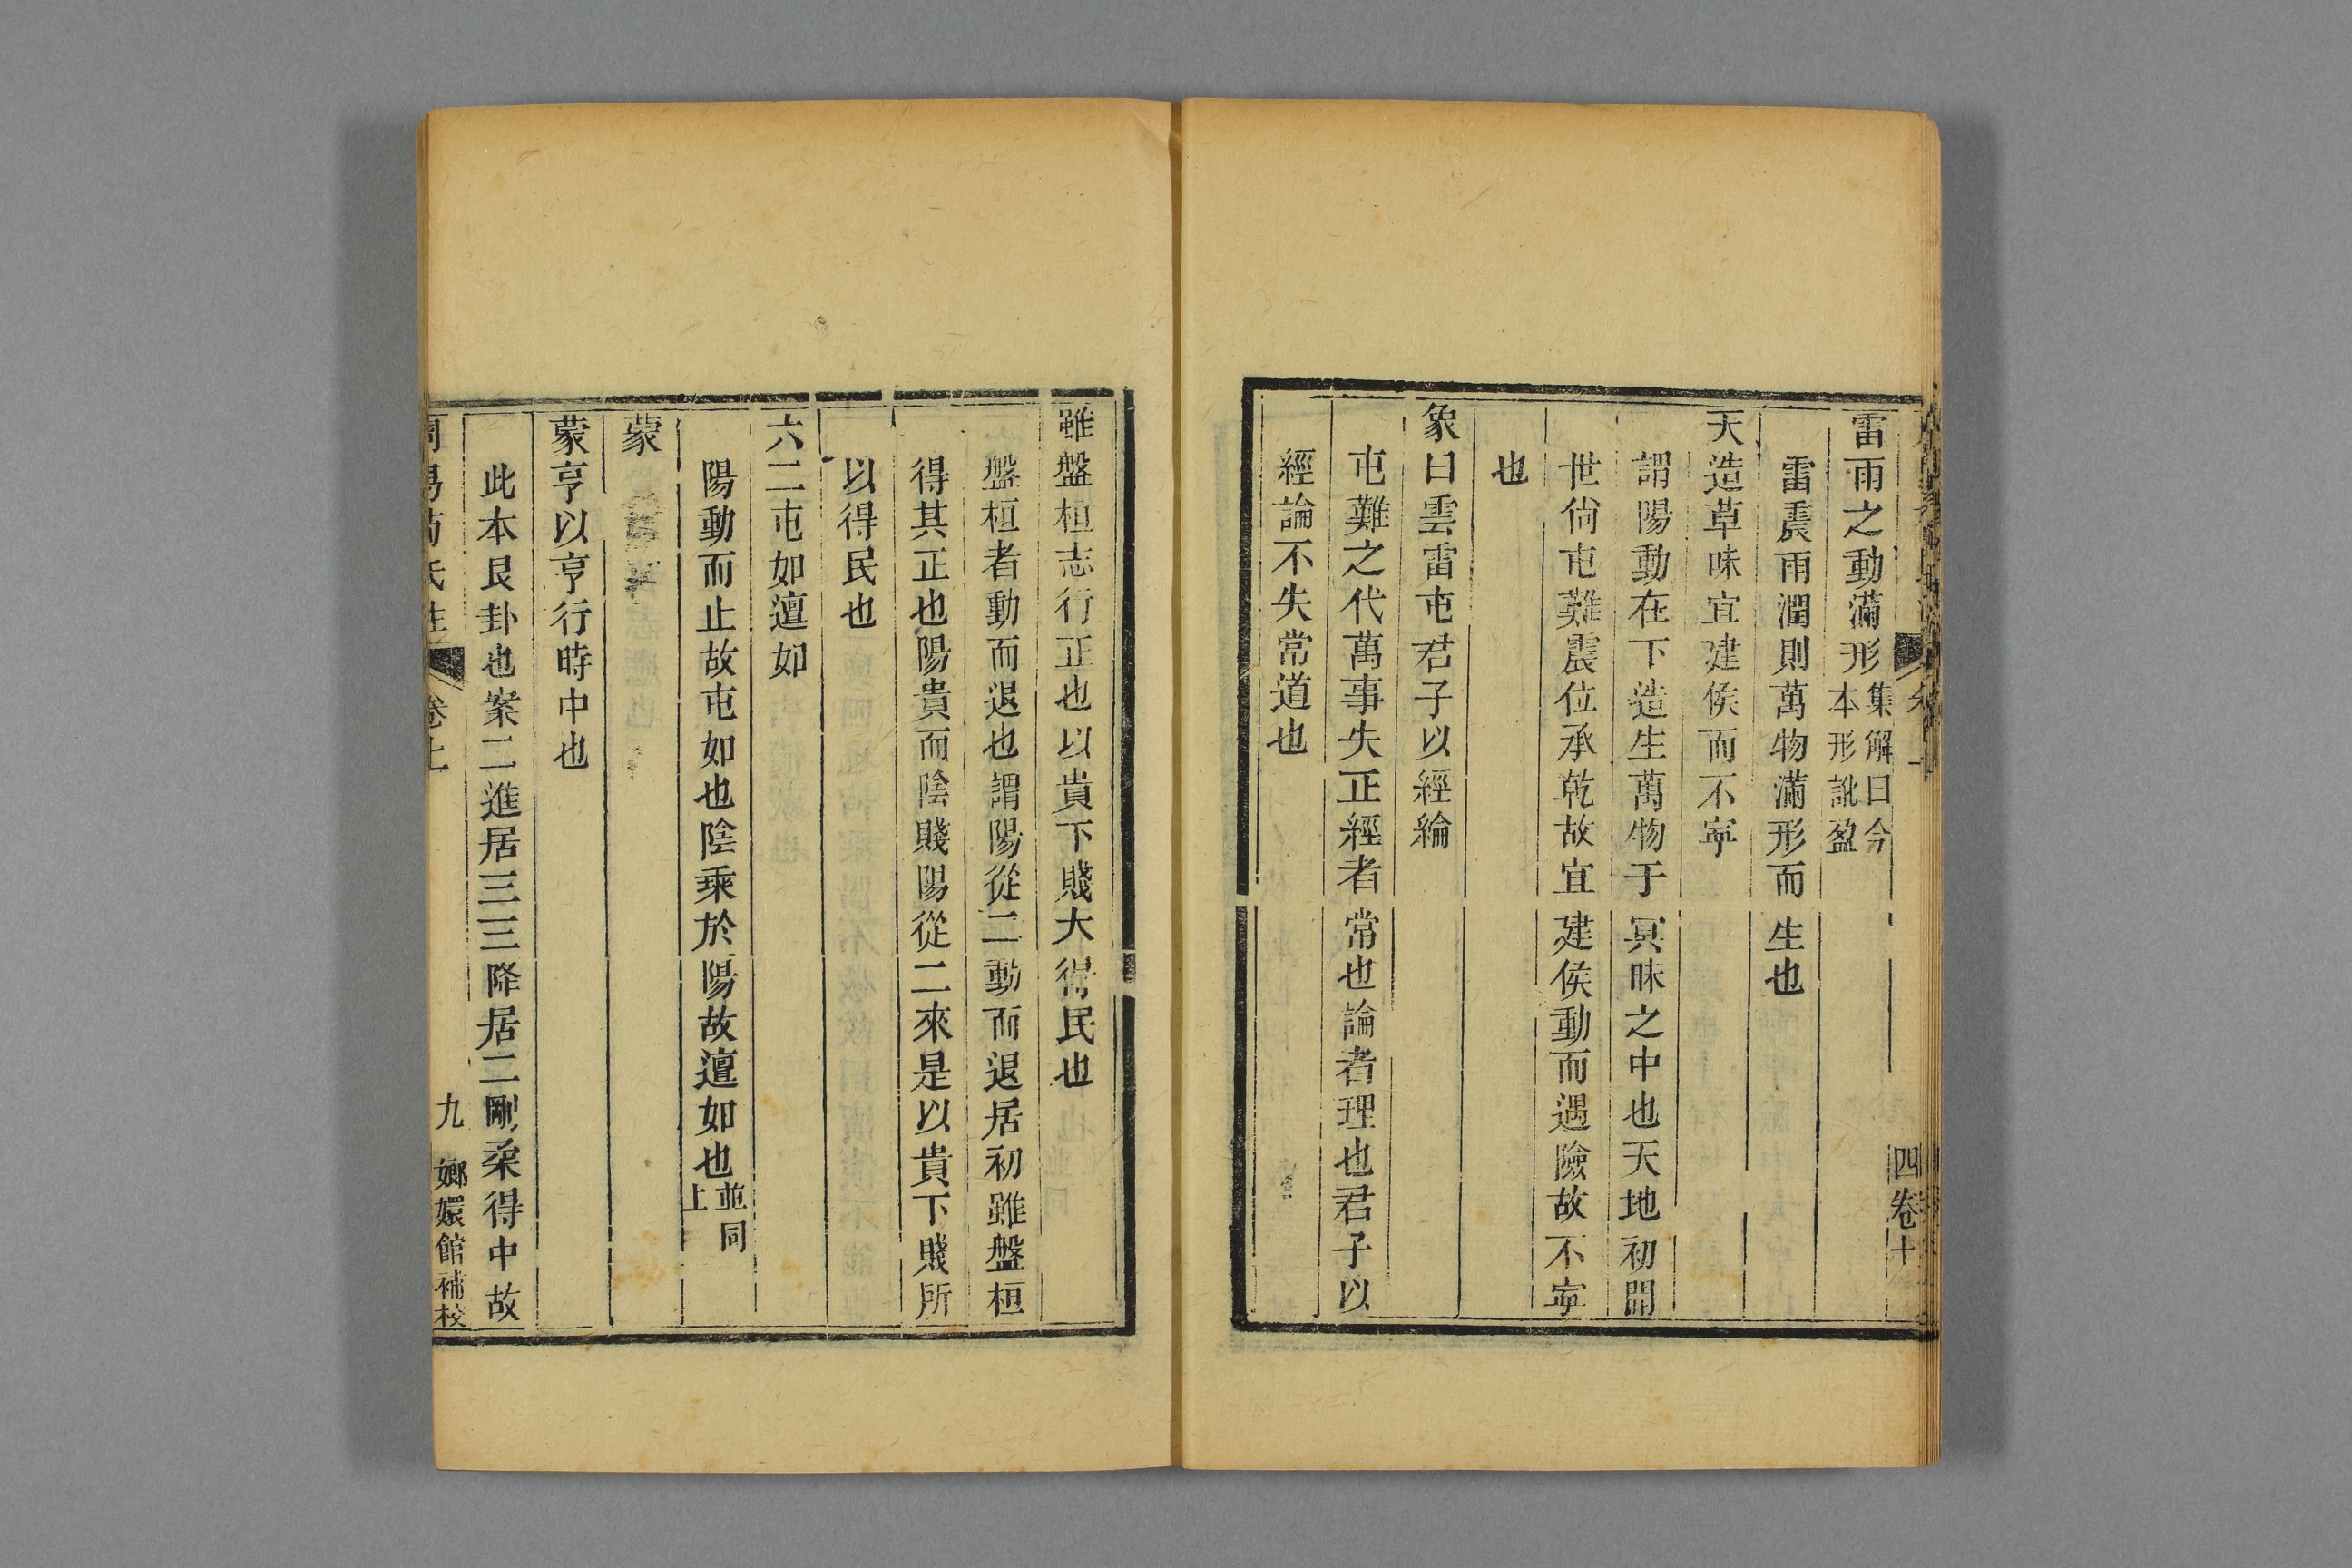 雷雨之動滿形集解曰今本形訛盈
雷震雨潤則萬物滿形而生也
天造草昧宜建侯而不寧
謂陽動在下造生萬物于冥昧之中也天地初開
世尙屯難震位承乾故宜建侯動而遇險故不寧
也
象曰雲雷屯君子以經綸
屯難之代萬事失正經者常也論者理也君子以
經論不失常道也
四卷十
雖盤桓志行正也以貴下賤大得民也
盤桓者動而退也謂陽從二動而退居初雖盤桓
得其正也陽貴而陰賤陽從二來是以貴下賤所
以得民也
六二屯如邅如
陽動而止故屯如也陰乘於陽故邅如也並同上
蒙
蒙亨以亨行時中也
此本艮卦也案二進居三三降居二剛柔得中故
周易荀氏注 卷上 九 嫏嬛館補校